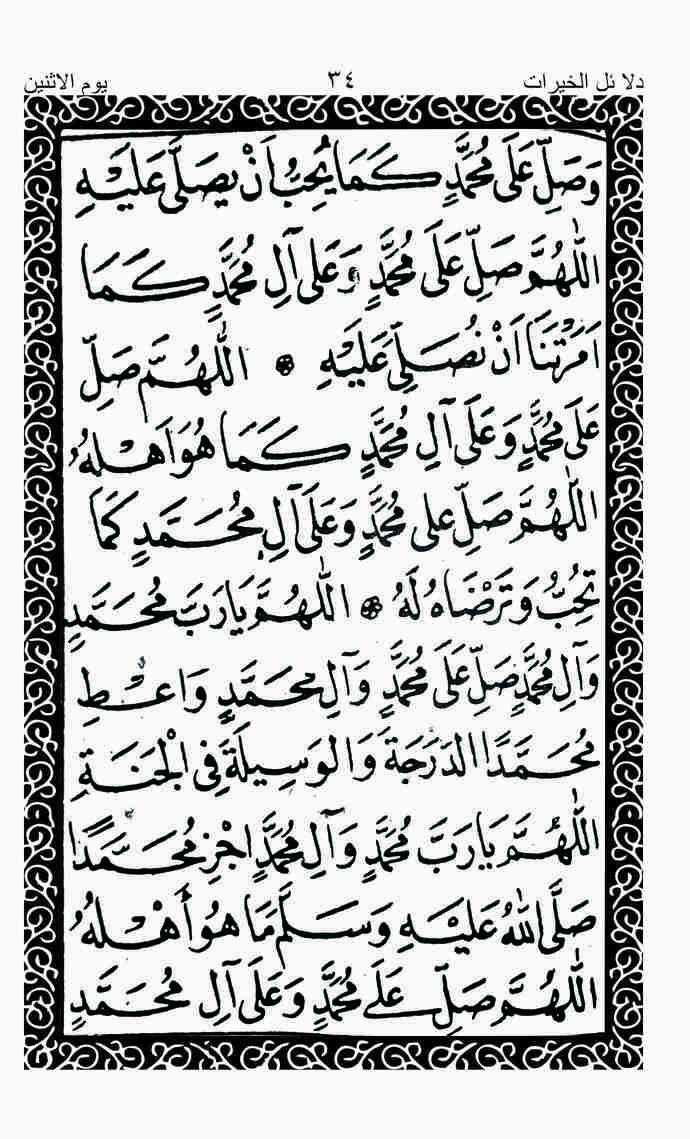 دلائل الخيرات ٣٤ يوم الاثنين
وَصَلِّ عَلَى مُحَمَّدٍ كَمَا يُحِبُّ اَنْ يُصَلَّى عَلَيْهِ
اَللّٰهُمَّ صَلِّ عَلَى مُحَمَّدٍ وَعَلَى آلِ مُحَمَّدٍ كَمَا
اَمَرْتَنَا اَنْ نُصَلِّىَ عَلَيْهِ ۞ اَللّٰهُمَّ صَلِّ
عَلَى مُحَمَّدٍ وَعَلَى آلِ مُحَمَّدٍ كَمَا هُوَ اَهْلُهُ
اَللّٰهُمَّ صَلِّ عَلى مُحَمَّدٍ وَعَلَى آلِ مُحَمَّدٍ كَمَا
تُحِبُّ وَتَرْضَاهُ لَهُ ۞ اَللّٰهُمَّ يَارَبَّ مُحَمَّدٍ
وَآلِ مُحَمَّدٍ صَلِّ عَلَى مُحَمَّدٍ وَآلِ مُحَمَّدٍ وَاعْطِ
مُحَمَّدًا الدَرَجَةَ وَالْوَسِيلَةَ فِى الْجَنَّةِ
اَللّٰهُمَّ يَارَبَّ مُحَمَّدٍ وَآلِ مُحَمَّدٍ اجْزِ مُحَمَّدًا
صَلَّى اللّٰهُ عَلَيْهِ وَسَلَّمَ مَا هُوَ أَهْلُهُ
اَللّٰهُمَّ صَلِّ عَلَى مُحَمَّدٍ وَعَلَى آلِ مُحَمَّدٍ